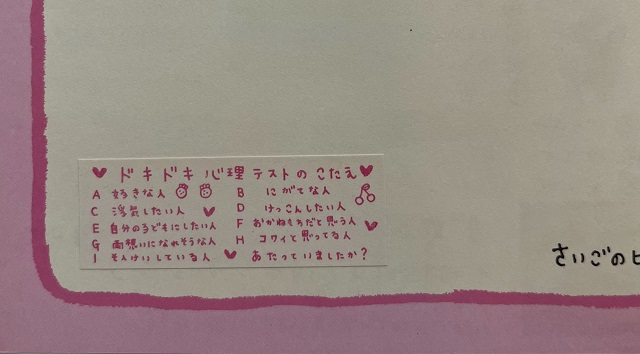 ドキドキ心理テストのこたえ
A 好きな人 B にがてな人
C 浮気したい人 D けっこんしたい人
E 自分の子どもにしたい人 F おかねもちだと思う人
G 両想いになれそうな人 H コワイと思ってる人
I そんけいしている人 あたっていましたか?
さいごのヒ